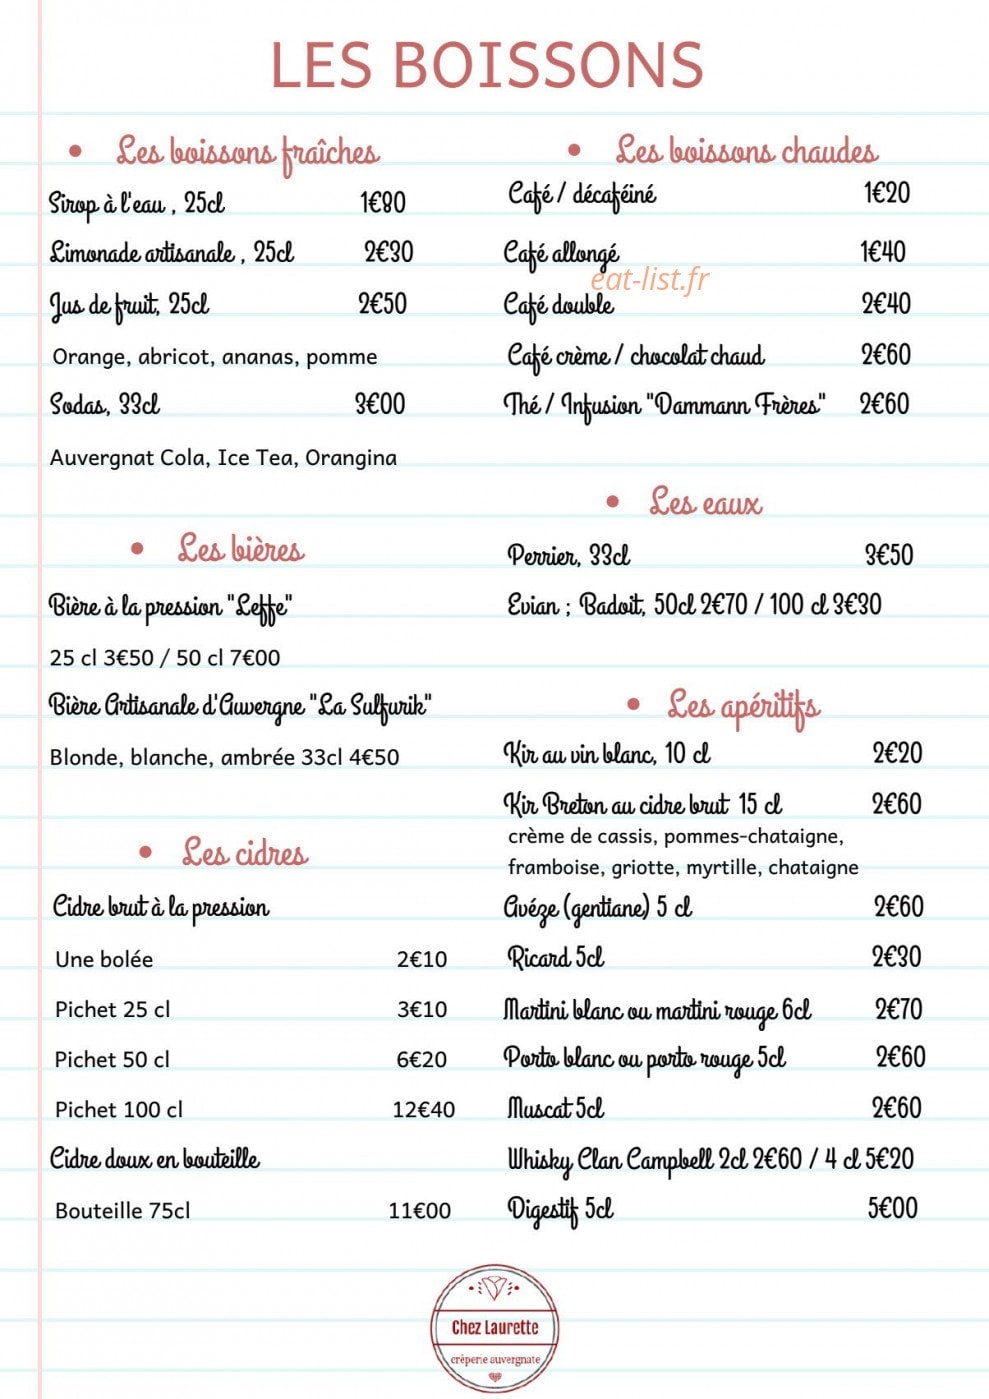 LES BOISSONS
• Les boissons fraîches
Sirop à l'eau , 25cl 1€80
Limonade artisanale , 25cl 2€30
Jus de fruit, 25cl 2€50
Orange, abricot, ananas, pomme
Sodas, 33cl 3€00
Auvergnat Cola, Ice Tea, Orangina
• Les bières
Bière à la pression "Leffe"
25 cl 3€50 / 50 cl 7€00
Bière Artisanale d'Auvergne "La Sulfurik"
Blonde, blanche, ambrée 33cl 4€50
• Les cidres
Cidre brut à la pression
Une bolée 2€10
Pichet 25 cl 3€10
Pichet 50 cl 6€20
Pichet 100 cl 12€40
Cidre doux en bouteille
Bouteille 75cl 11€00
• Les boissons chaudes
Café / décaféiné 1€20
Café allongé 1€40
eat-list.fr
Café double 2€40
Café crème / chocolat chaud 2€60
Thé / Infusion "Dammann Frères" 2€60
• Les eaux
Perrier, 33cl 3€50
Evian ; Badoit, 50cl 2€70 / 100 cl 3€30
• Les apéritifs
Kir au vin blanc, 10 cl 2€20
Kir Breton au cidre brut 15 cl 2€60
crème de cassis, pommes-chataigne,
framboise, griotte, myrtille, chataigne
Avéze (gentiane) 5 cl 2€60
Ricard 5cl 2€30
Martini blanc ou martini rouge 6cl 2€70
Porto blanc ou porto rouge 5cl 2€60
Muscat 5cl 2€60
Whisky Clan Campbell 2cl 2€60 / 4 cl 5€20
Digestif 5cl 5€00
Chez Laurette
crêperie auvergnate